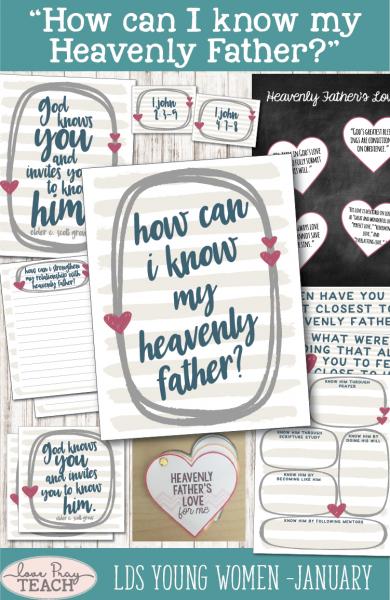 “How can I know my
Heavenly Father?”
god
knows
you
and
invites you
to know
him.
elder c. scott grow
1 john
2:3-9
1 john
4:7-8
Heavenly Father's Lov
"GOD'S GREATEST BLESS
INGS ARE CONDITIONED
ON OBEDIENCE."
how can
i know
my
heavenly
father?
how can i strengthen
my relationship with
heavenly father?
EN HAVE YOU
T CLOSEST TO
VENLY FATHE
WHAT WERE
ING THAT AL
YOU TO FE
CLOSE TO H
KNOW HIM THROUGH
PRAYER
KNOW HIM THROUGH
SCRIPTURE STUDY
KNOW HIM BY
DOING HIS WILL
KNOW HIM BY
BECOMING LIKE HIM
KNOW HIM BY FOLLOWING MENTORS
god knows
you
and invites
you to know
him.
elder c. scott grow
HEAVENLY
FATHER'S
LOVE
for me
love Pray
TEACH
LDS YOUNG WOMEN -JANUARY